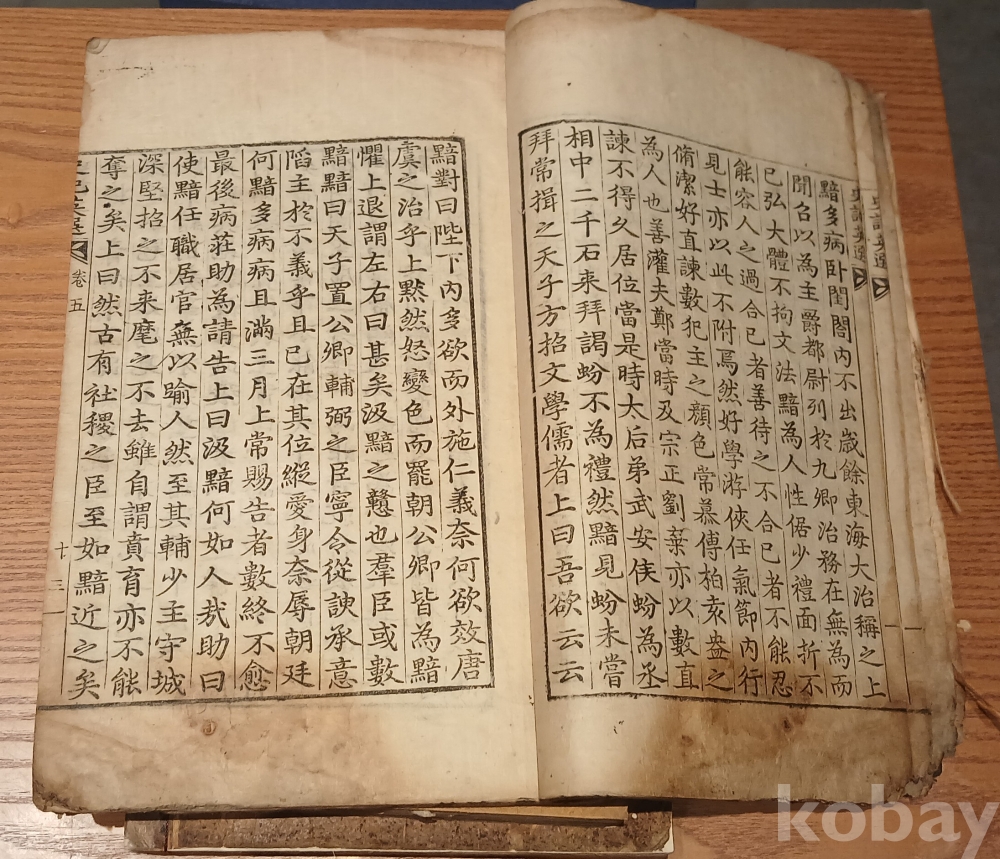 史記英選
黯多病卧閨閤內不出歲餘東海大治稱之上
聞召以為主爵都尉列於九卿治務在無為而
已弘大體不拘文法黯為人性倨少禮面折不
能容人之過合已者善待之不合已者不能忍
見士亦以此不附焉然好學游俠任氣節內行
脩潔好直諫數犯主之顏色常慕傅柏袁盎之
為人也善灌夫鄭當時及宗正劉棄亦以數直
諫不得久居位當是時太后弟武安侯蚡為丞
相中二千石来拜謁蚡不為禮然黯見蚡未嘗
拜常揖之天子方招文學儒者上曰吾欲云云
黯對曰陛下內多欲而外施仁義奈何欲效唐
虞之治乎上默然怒變色而罷朝公卿皆為黯
懼上退謂左右曰甚矣汲黯之戇也羣臣或數
黯黯曰天子置公卿輔弼之臣寧令從諛承意
陷主於不義乎且已在其位縱愛身奈辱朝廷
何黯多病病且滿三月上常賜告者數終不愈
最後病莊助為請告上曰汲黯何如人哉助曰
使黯任職居官無以踰人然至其輔少主守城
深堅招之不来麾之不去雖自謂賁育亦不能
奪之矣上曰然古有社稷之臣至如黯近之矣
史記英選 卷五 十三
kobay